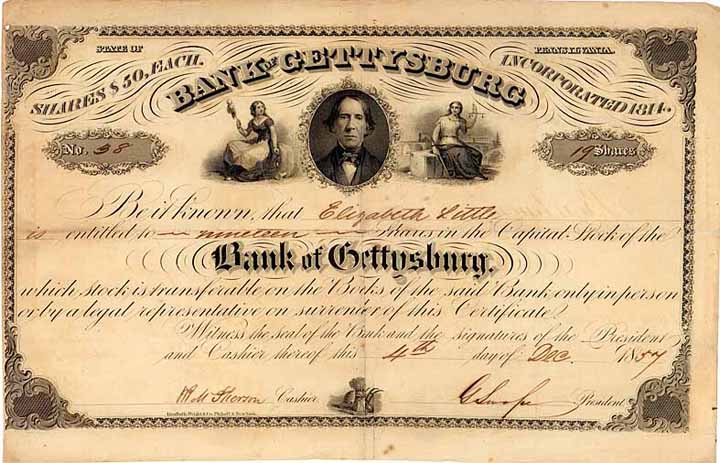 STATE OF PENNSYLVANIA.
SHARES $50, EACH. BANK OF GETTYSBURG INCORPORATED 1814.
No. 38 19 Shares
Be it known, that Elizabeth Little
is entitled to nineteen shares in the Capital Stock of the
Bank of Gettysburg.
which stock is transferable on the Books of the said Bank only in person
or by a legal representative on surrender of this Certificate.
Witness the seal of the Bank and the signatures of the President
and Cashier thereof this 4th day of Dec. 1857
Cashier. President.